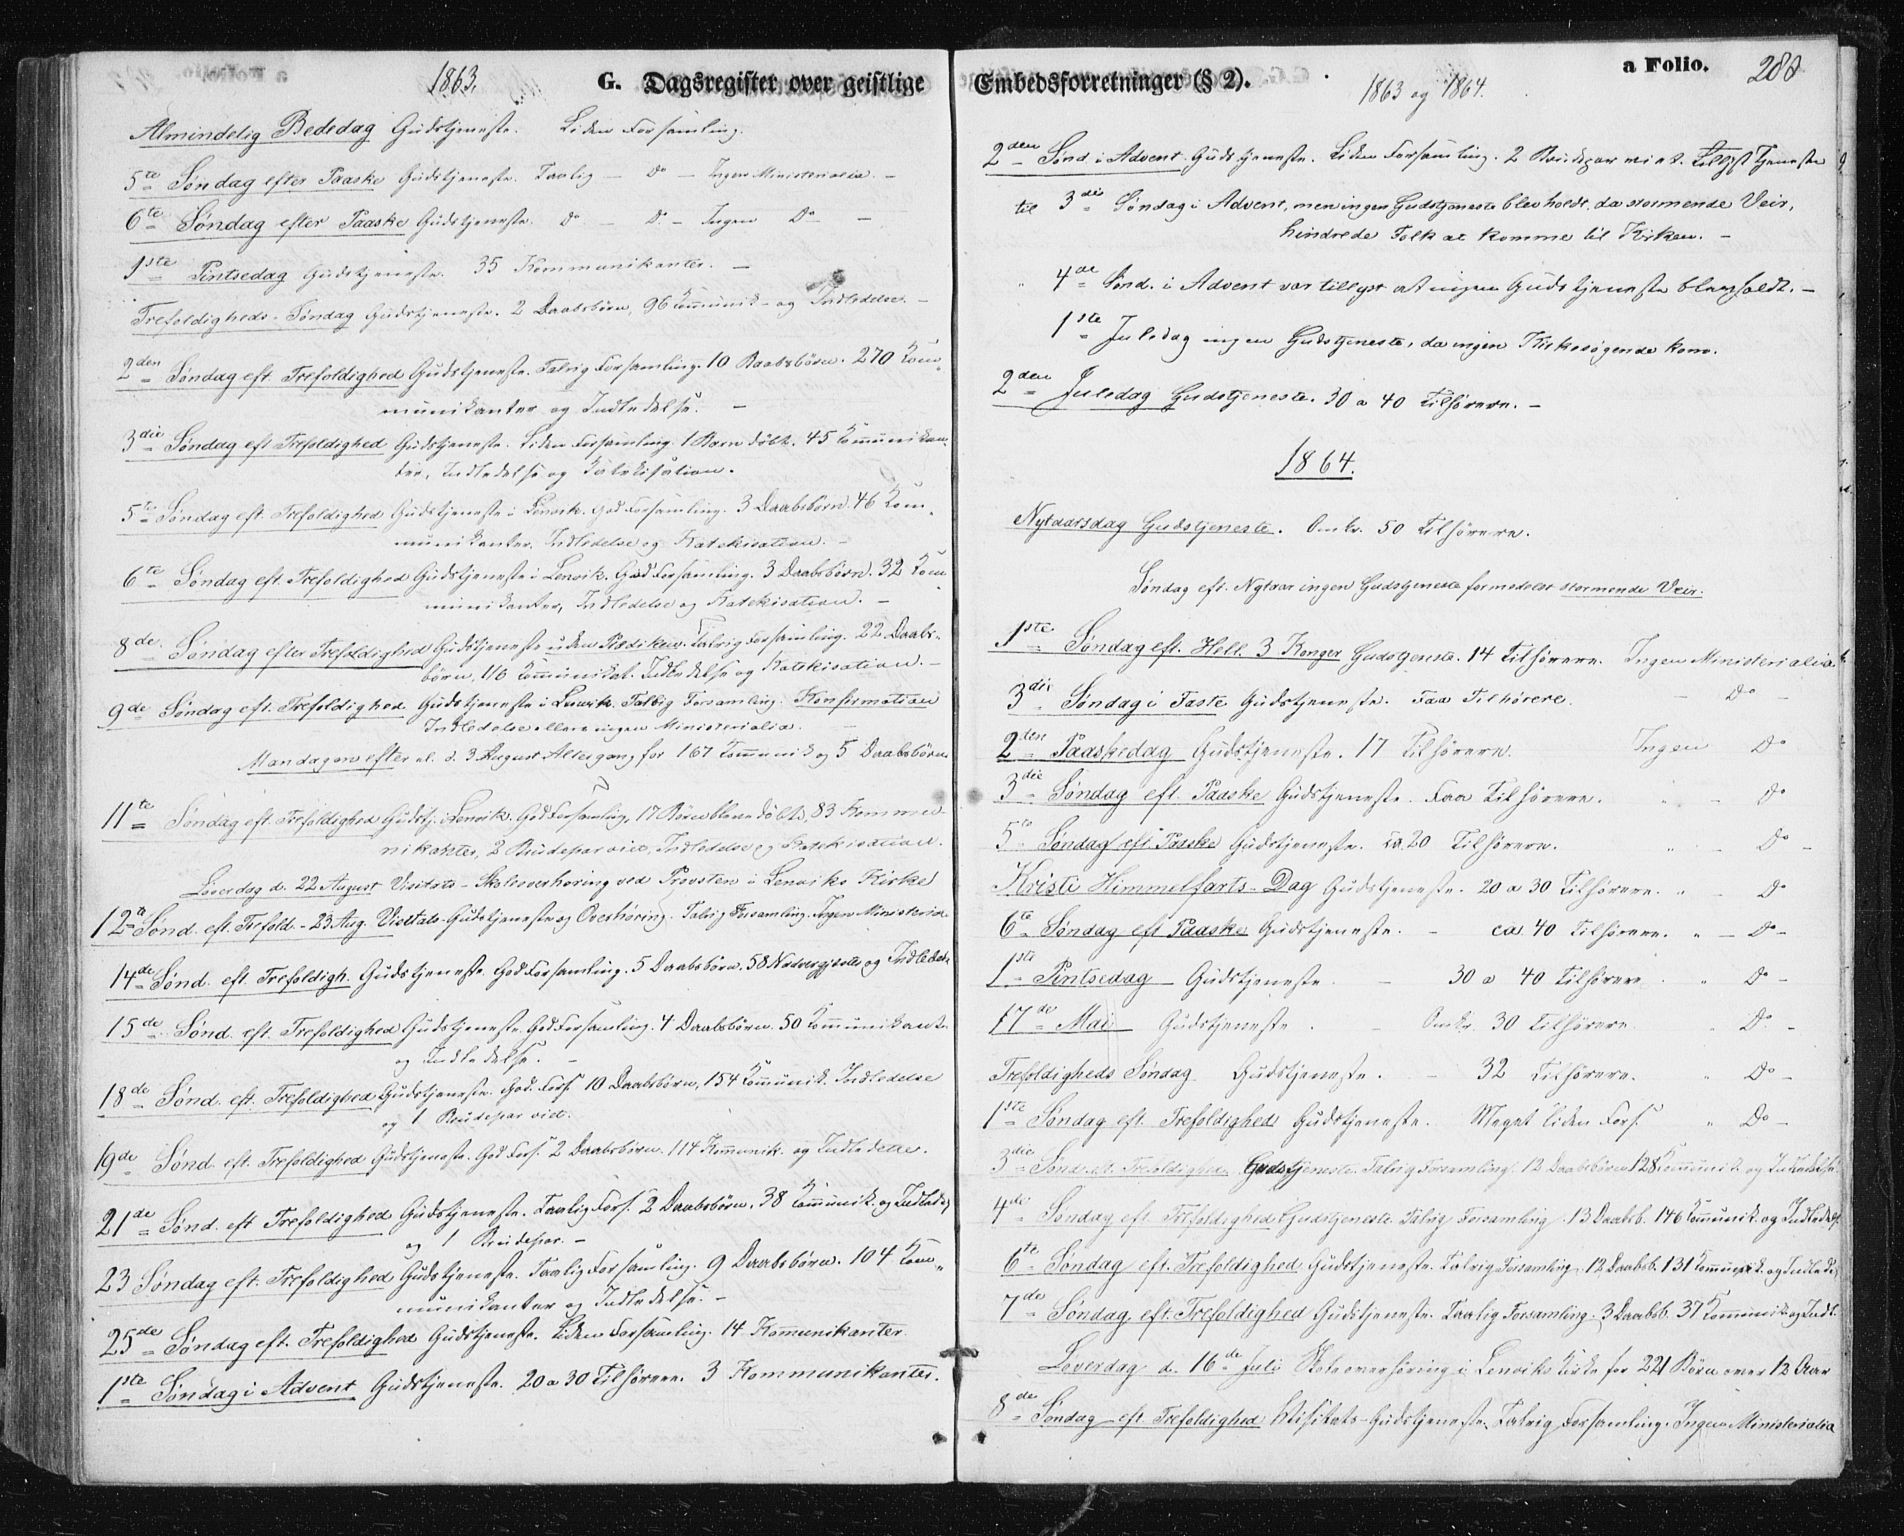 1863.
G. Dagsregister over geistlige
Almindelig Bededag Gudstjeneste. Liden Forsamling.
5te Søndag efter Paaske Gudstjeneste. Taalig — Do — Ingen Ministerialia. —
6te Søndag efter Paaske Gudstjeneste. Do — Do — Ingen Do —
1ste Pintsedag Gudstjeneste. 35 Kommunikanter. —
Trefoldigheds-Søndag Gudstjeneste. 2 Daabsbörn, 96 Kommunik- og Indledelse. —
2den Søndag eft. Trefoldighed Gudstjeneste. Talrig Forsamling. 10 Daabsbörn. 270 Kom-
munikanter og Indledelse. —
3die Søndag eft Trefoldighed Gudstjeneste. Liden Forsamling. 1 Barn döbt. 45 Kommunikan-
ter, Indledelse og Katekisation.
5te Søndag eft. Trefoldighed Gudstjeneste i Lenvik. God Forsamling. 3 Daabsbörn. 46 Kom-
munikanter, Indledelse og Katekisation. —
6te Søndag eft. Trefoldighed Gudstjeneste i Lenvik. God Forsamling. 3 Daabsbörn. 32 Kom-
munikanter, Indledelse og Katekisation. —
8de Søndag efter Trefoldighed Gudstjeneste uden Prædiken. Talrig Forsamling. 22 Daabs-
börn, 116 Communikat. Indledelse og Katekisation. —
9de Søndag eft. Trefoldighed Gudstjeneste i Lenvik. Talrig Forsamling. Konfirmation
Indledelse ellers ingen Ministerialia.
Mandagen efter el. d. 3 August Altergang for 167 Kommunik og 5 Daabsbörn
11te Søndag eft. Trefoldighed Gudstj. i Lenvik. God Forsamling, 17 Börn bleve döbte, 83 Kommu-
nikanter, 2 Brudepar viet, Indledelse og Katekisation.
Løverdag d. 22 August Visitats-Skoleoverhøring ved Provsten i Lenviks Kirke
12te Sönd. eft. Trefold. - 23 Aug. Visitats-Gudstjeneste og Overhøring. Talrig Forsamling. Ingen Ministerial
14de Sønd. eft. Trefoldigh. Gudstjeneste. God Forsamling. 5 Daabsbörn. 58 Nadvergjester og Indledelse
15de Sønd. eft. Trefoldighed Gudstjeneste. God Forsamling. 4 Daabsbörn. 50 Kommunikant.
og Indledelse. —
18de Sønd. eft. Trefoldighed Gudstjeneste. God. Fors. 10 Daabsbörn, 154 Kommunik. Indledelse
og 1 Brudepar viet.
19de Sønd. eft. Trefoldighed Gudstjeneste. God Fors. 2 Daabsbörn. 114 Kommunik. og Indledelse.
21de Sønd. eft Trefoldighed Gudstjeneste. Taalig Fors. 2 Daabsbörn. 38 Kommunik. og Indledelse
og 1 Brudepar. —
23 Søndag eft. Trefoldighed Gudstjeneste. Taalig Forsamling. 9 Daabsbörn. 104 Kom-
munikanter og Indledelse. —
25de Søndag eft. Trefoldighed Gudstjeneste. Liden Forsamling. 14 Kommunikanter.
1ste Søndag i Advent Gudstjeneste. 20 a 30 Tilhørere. 3 Kommunikanter.
Embedsforretninger (§ 2).
1863 og 1864.
a Folio. 280
2den Sønd i Advent Gudstjeneste. Liden Forsamling. 2 Brudepar viet. Tillyst Tjeneste
til 3die Søndag i Advent, men ingen Gudstjeneste blev holdt, da stormende Veir,
hindrede Folk at komme til Kirken. —
4de Sønd. i Advent var tillyst at ingen Gudstjeneste blev holdt. —
1ste Juledag ingen Gudstjeneste, da ingen Kirkesøgende kom.
2den Juledag Gudstjeneste. 30 a 40 Tilhørere. —
1864.
Nytaarsdag Gudstjeneste. Omtr. 50 Tilhørere.
Søndag eft. Nytaar ingen Gudstjeneste formedelst stormende Veir.
1ste Søndag eft. Hell. 3 Konger Gudstjeneste. 14 Tilhørere. Ingen Ministerialia.
3die Søndag i Faste Gudstjeneste. Faa Tilhörere. — Do —
2den Paaskedag Gudstjeneste. 17 Tilhørere. Ingen Do
3die Søndag eft. Paaske Gudstjeneste. Faa Tilhørere. " — Do
5te Søndag eft. Paaske Gudstjeneste. ca. 20 Tilhørere. " — Do —
Kristi Himmelfarts-Dag Gudstjeneste. 20 a 30 Tilhørere. " — Do
6te Søndag eft Paaske Gudstjeneste. — ca 40 Tilhørere. " — Do —
1ste Pintsedag Gudstjeneste. — 30 a 40 Tilhørere. " Do —
17de Mai Gudstjeneste. — Omtr. 30 Tilhørere. Do —
Trefoldigheds Søndag Gudstjeneste. — 32 Tilhørere. " Do —
1ste Søndag eft. Trefoldighed Gudstjeneste. Meget liden Fors. " Do —
3die Sønd. eft. Trefoldighed Gudstjeneste. Talrig Forsamling. 12 Daabsbörn 128 Kommunik og Indledelse.
4de Søndag eft. Trefoldighed Gudstjeneste. Talrig Forsamling. 13 Daabsb. 146 Kommunik. og Indledels.
6te Søndag eft. Trefoldighed Gudstjeneste. Talrig Forsamling. 12 Daabsb. 131 Kommunik. og Indledel.
7de Søndag eft. Trefoldighed Gudstjeneste. Taalig Forsamling. 3 Daabsb. 37 Kommunik og Indl.
Løverdag d. 16de Juli Skoleoverhøring i Lenviks Kirke for 221 Börn over 12 Aar
8de Søndag eft. Trefoldighed Visitats-Gudstjeneste. Talrig Forsamling. Ingen Ministerialia